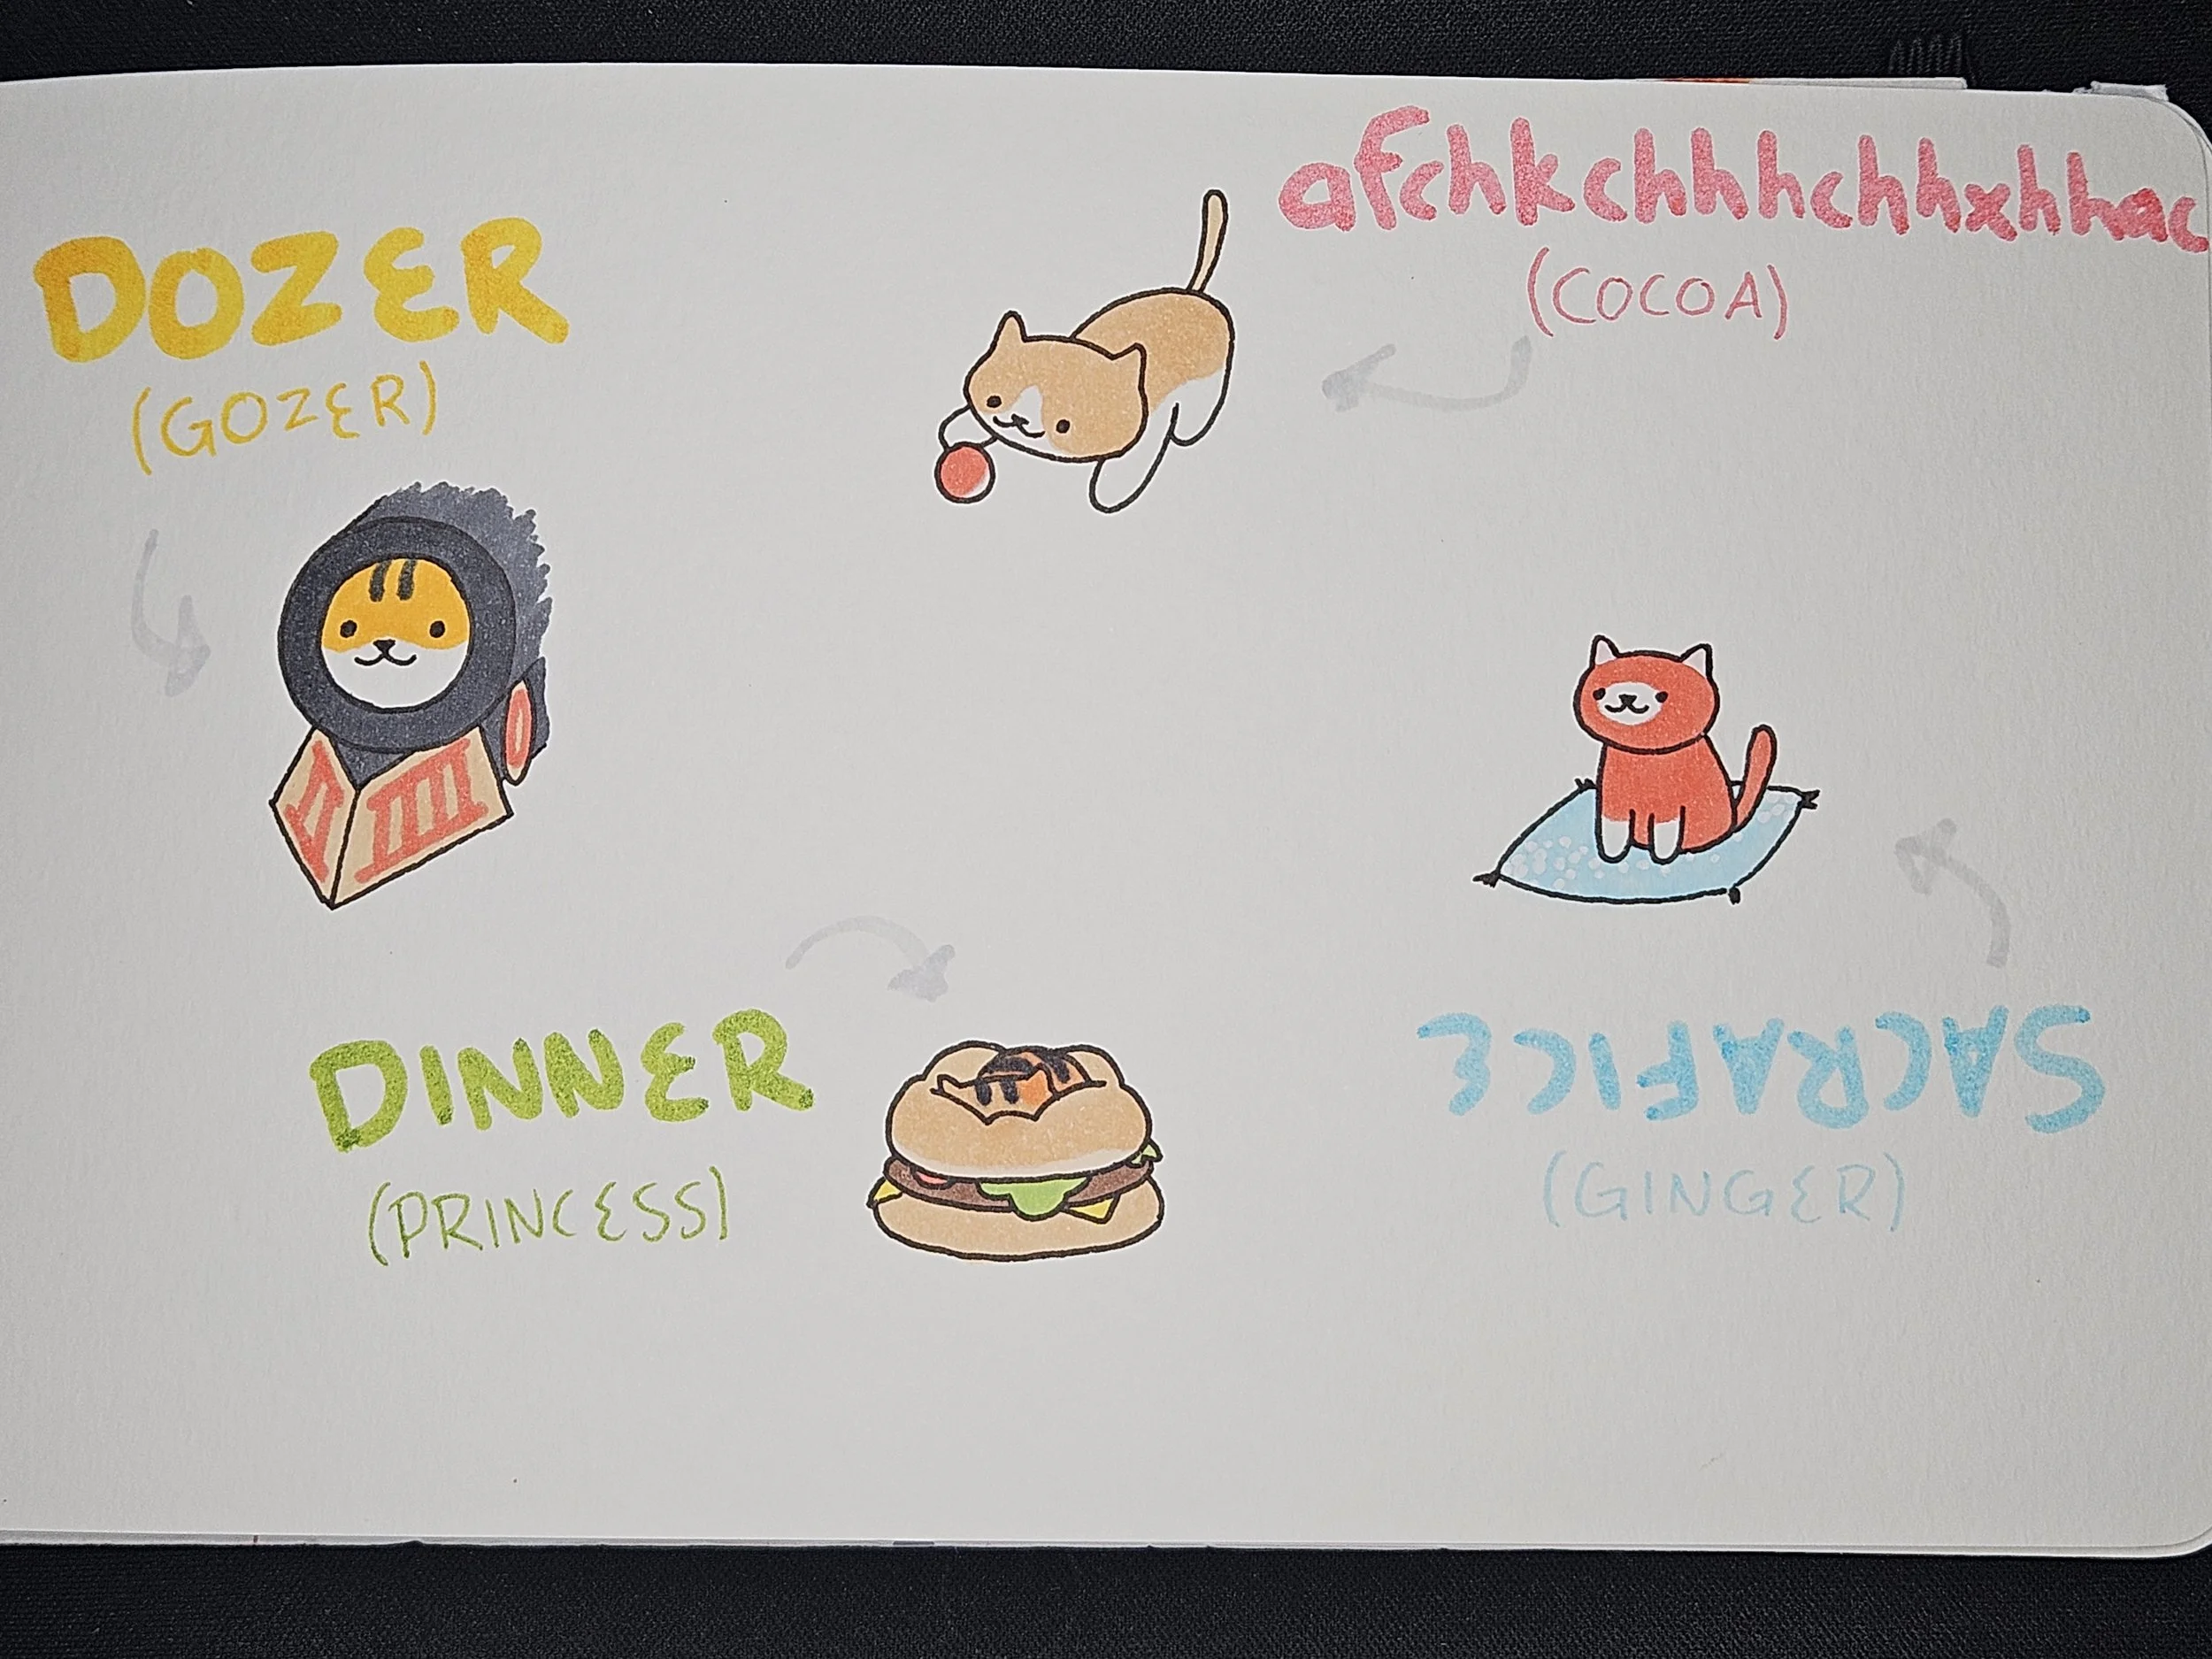 afchkchhhchhxhhac
(COCOA)
DOZER
(GOZER)
DINNER
(PRINCESS)
SACRAFICE
(GINGER)